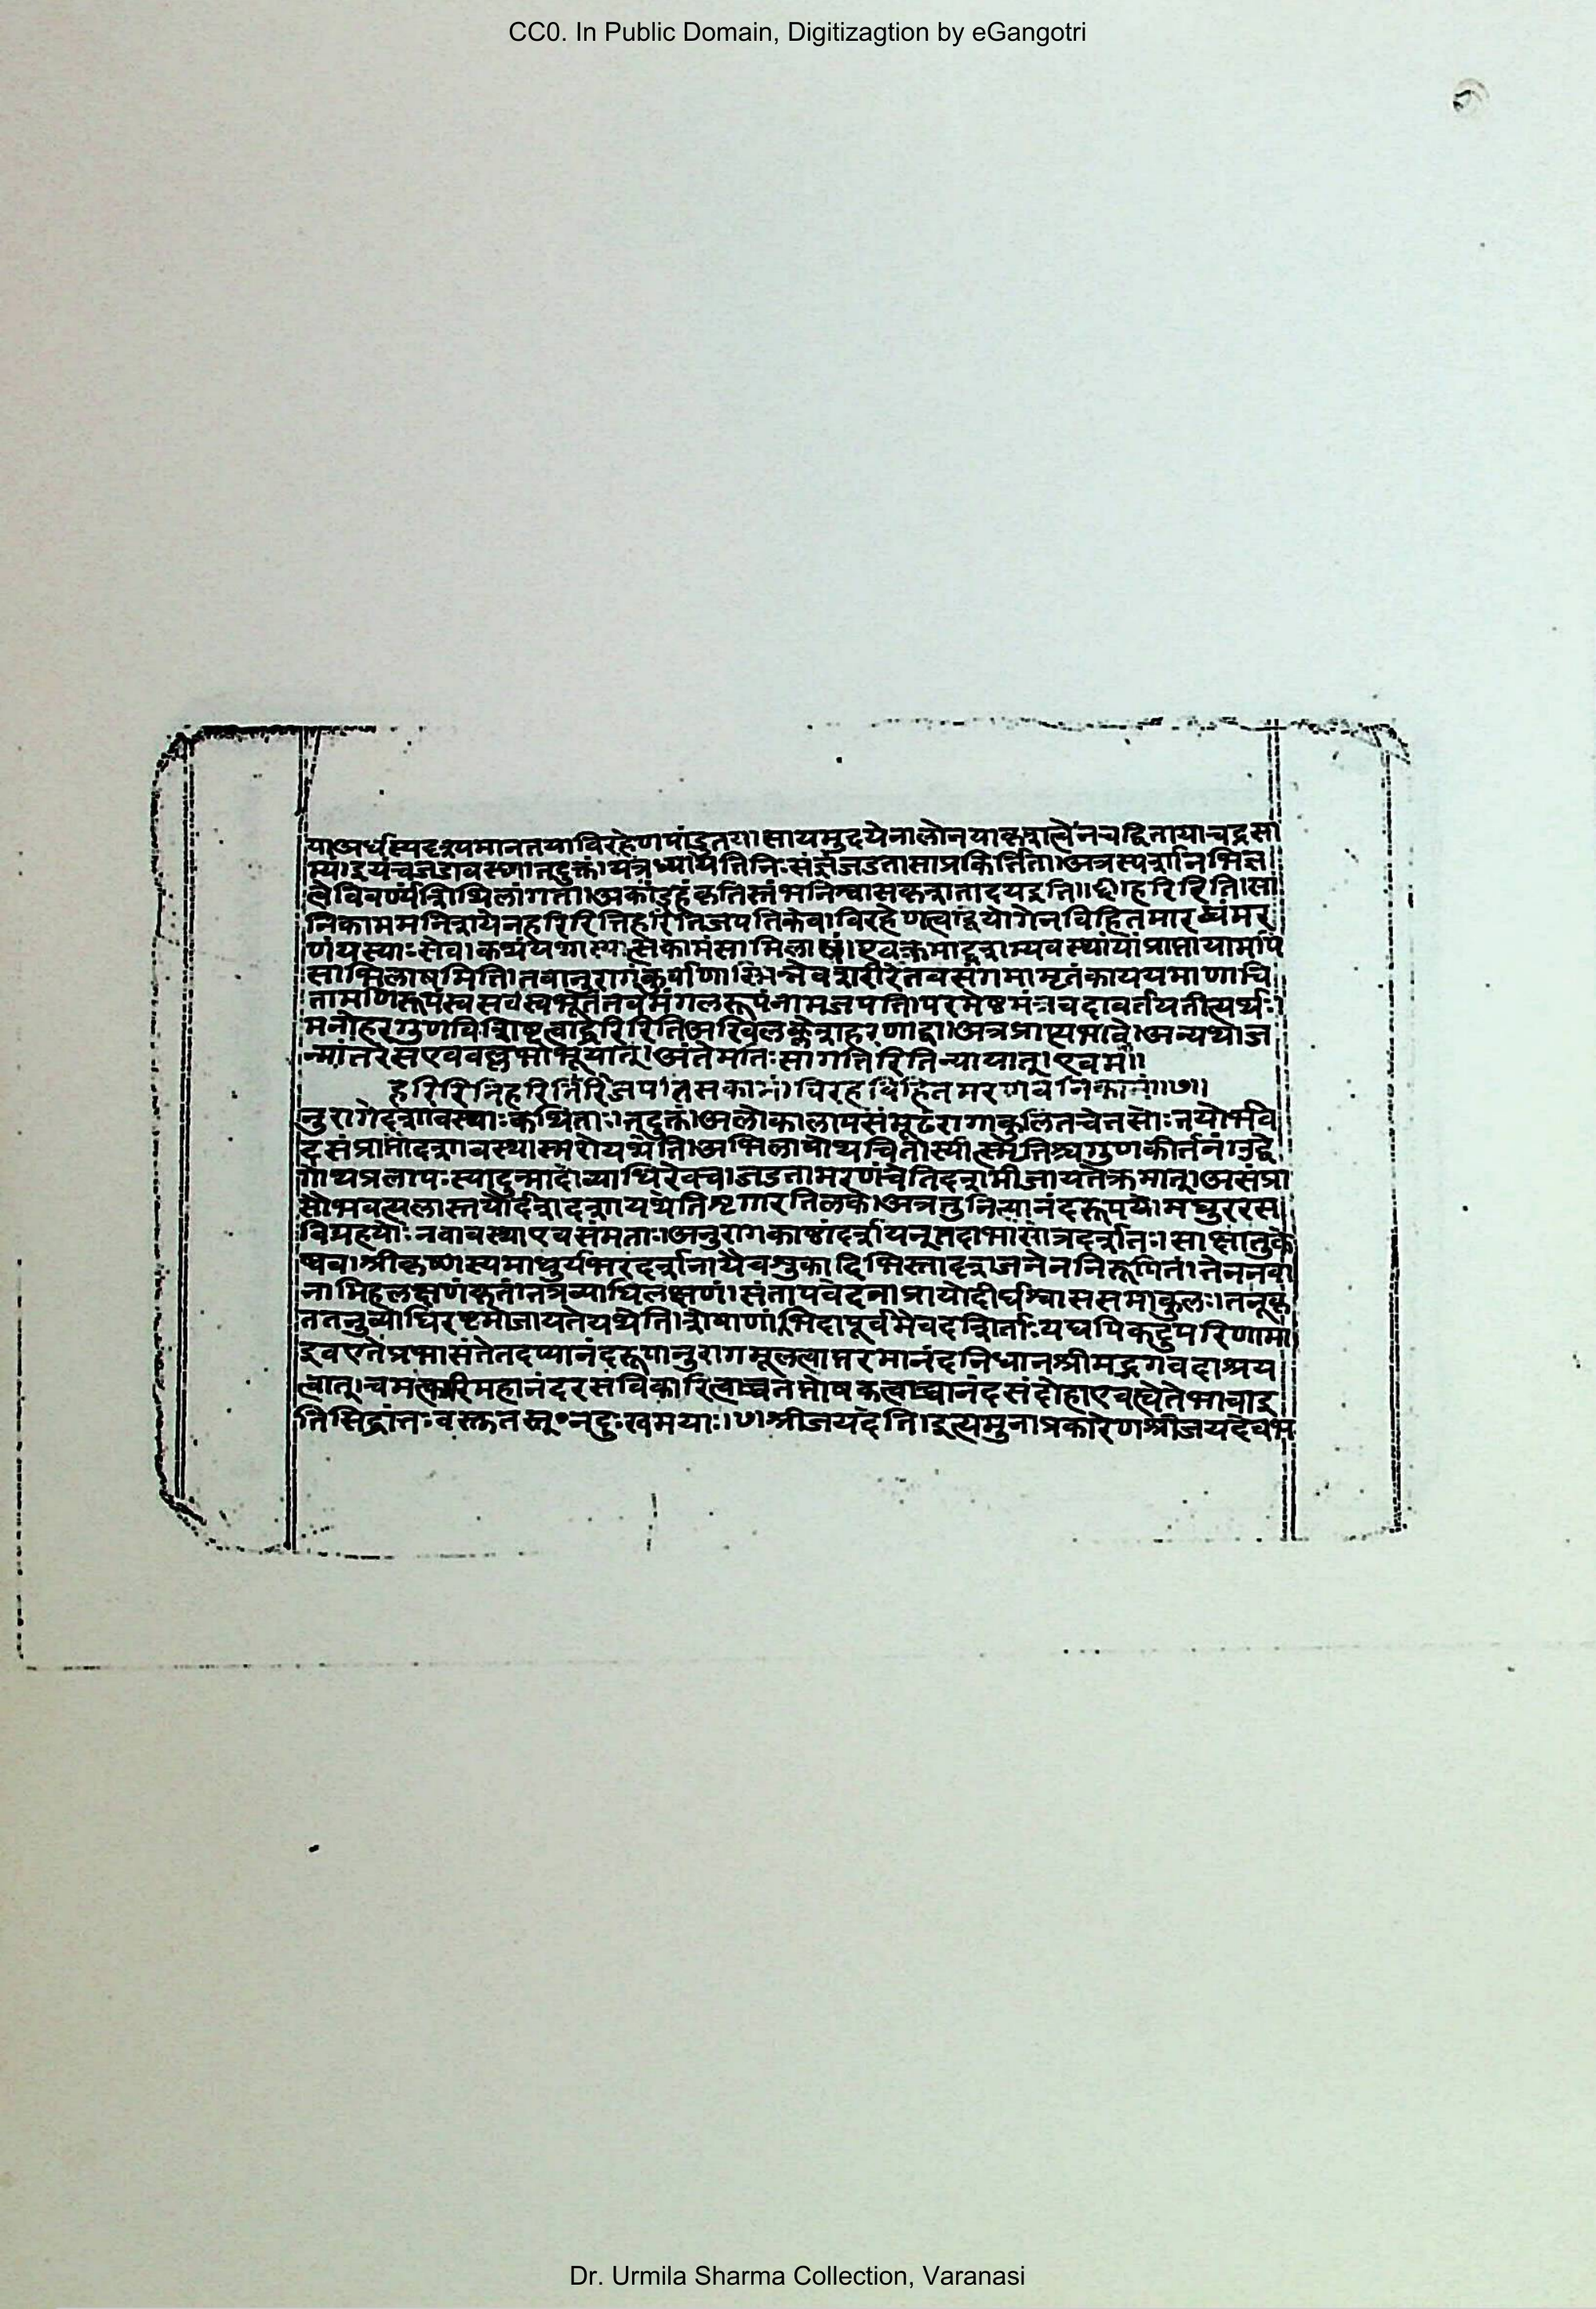 CC0. In Public Domain, Digitizagtion by eGangotri
या।अर्धस्यदृश्यमानतयाविरहेणपांडुतया।सायमुदयेनालोनयाकृशत्वेनचद्वितीयाचंद्रसा
म्यं।इयंचजडावस्था।तदुक्तं।यत्रध्यायतिनिःसंज्ञंजडतासाप्रकीर्त्तिता।अत्रस्पर्शानभिज्ञ
त्वेविवर्ण्यंशिथिलांगता।अकांडहुंकृतिस्तंभनिश्वासकृशतादयइति।।६।।हरिरिति।सा
निकाममनिशयेनहरिरितिहरिरितिजपतिकेव।विरहेणत्वद्वियोगेनविहितमारब्धंमर
णंयस्याःसेव।कथंयथास्यात्सकामंसाभिलाषं।एवंक्रमाद्दशम्यवस्थायांप्राप्तायामपि
साभिलाषमिति।तवानुरागंकुर्वाणाभिन्नेवशरीरेतवसंगमामृतंकाययमाणाचिं
तामणिरूपंस्वसर्वस्वभूतंतवमंगलरूपंनामजपति।परमेष्ठमंत्रवदावर्तयतीत्यर्थः।
मनोहरगुणविशिष्टत्वाद्धरिरितिअखिलक्लेशहरणाद्वा।अत्रप्राप्यभावे।अन्यथाज
न्मांतरेसएववल्लभोभूयात्।अंतेमतिःसागतिरितिन्यायात्।एवम।।
हरिरितिहरिरितिजपतिसकामं।विरहविहितमरणेवनिकामं।।७।।
नुरागेदशावस्थाःकथिताः।तदुक्तं।अलोकालापसंमूढरागाकुलितचेतसोः।तयोर्भवे
दसंप्राप्तौदशावस्थास्मरोयथेति।अभिलाषोथचिंतास्यात्स्मृतिश्चगुणकीर्तनं।उद्वे
गोथप्रलापःस्यादुन्मादोव्याधिरेवच।जडतामरणंचेतिदशमीजायतेक्रमात्।असंप्रा
प्तौभवत्यलास्तयोर्दशादशायथेतिशृंगारतिलके।अत्रतुनित्यानंदरूपयोर्मधुररस
विग्रहयोःनवावस्थाएवसंमताः।अनुरागकाष्ठांदर्शायनूतदाभासात्रदर्शातः।साक्षात्तुके
ष्वव।श्रीकृष्णस्यमाधुर्यभरदर्शनायैवशुकादिभिस्तादृशजनेननिरूपितं।तेननवा
नामिहलक्षणंकृतं।तत्रव्याधिलक्षणं।संतापवेदनाप्रायोदीर्घश्वाससमाकुलः।तनूकृ
ततनुर्व्याधिरष्टमोजायतेयथेति।शेषाणांभिदापूर्वमेवदर्शिताः।यद्यपिकटुपरिणामा
इवएतेप्रभासंतेतदप्यानंदरूपानुरागमूलत्वात्तरमानंदनिधानश्रीमद्भगवदाश्रय
त्वात्।चमत्कारिमहानंदरसविकारित्वाच्चतत्पोषकत्वाच्चानंदसंदोहाएवत्वेतेभावाइ
तिसिद्धांतःवस्तुतस्तु॰न्दुःखमयाः।७।श्रीजयदेति।इत्यमुनाप्रकारेणश्रीजयदेवभ
Dr. Urmila Sharma Collection, Varanasi